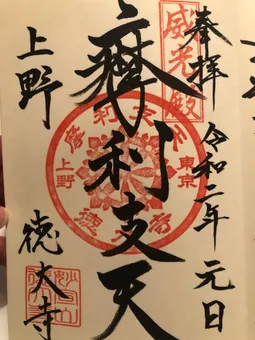 奉拝 令和二年 元日
威光殿
摩利支天
摩利支天
東京
上野
德大寺
上野 徳大寺